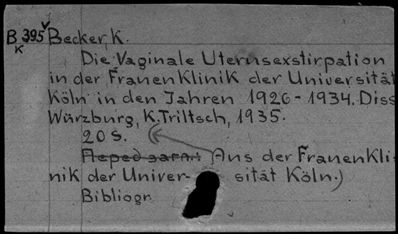 B 395 Becker, K.
K
Die Vaginale Uterusexstirpation
in der Frauenklinik der Universität
Köln in den Jahren 1926-1934. Diss
Würzburg, K. Triltsch, 1935.
20 S.
Перед загл: Aus der Frauenkli-
nik der Univer- sität Köln.)
Bibliogr